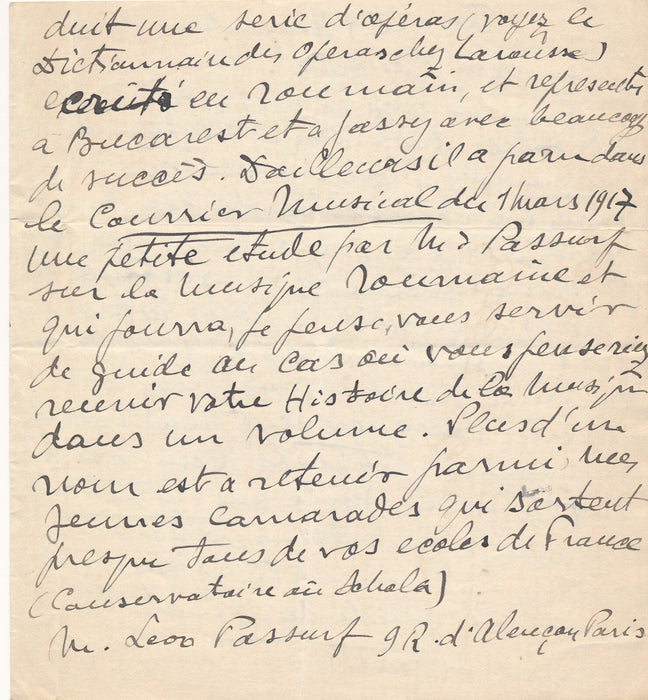 duit une serie d'opéras (voyez le
Dictionnaire des Operas chez Larousse)
en roumain, et representés
à Bucarest et a Jassy avec beaucoup
de succès. D'ailleurs il a paru dans
le Courrier Musical du 1 mars 1917
une petite etude par Mr Passurf
sur la musique roumaine et
qui pourra, je pense, vous servir
de guide au cas où vous penseriez
reunir votre Histoire de la Musique
dans un volume. Plus d'un
nom est a retenir parmi mes
jeunes camarades qui sortent
presque tous de vos ecoles de France
(Conservatoire ou Schola)
M. Leon Passurf 9 R. d'Alençon Paris